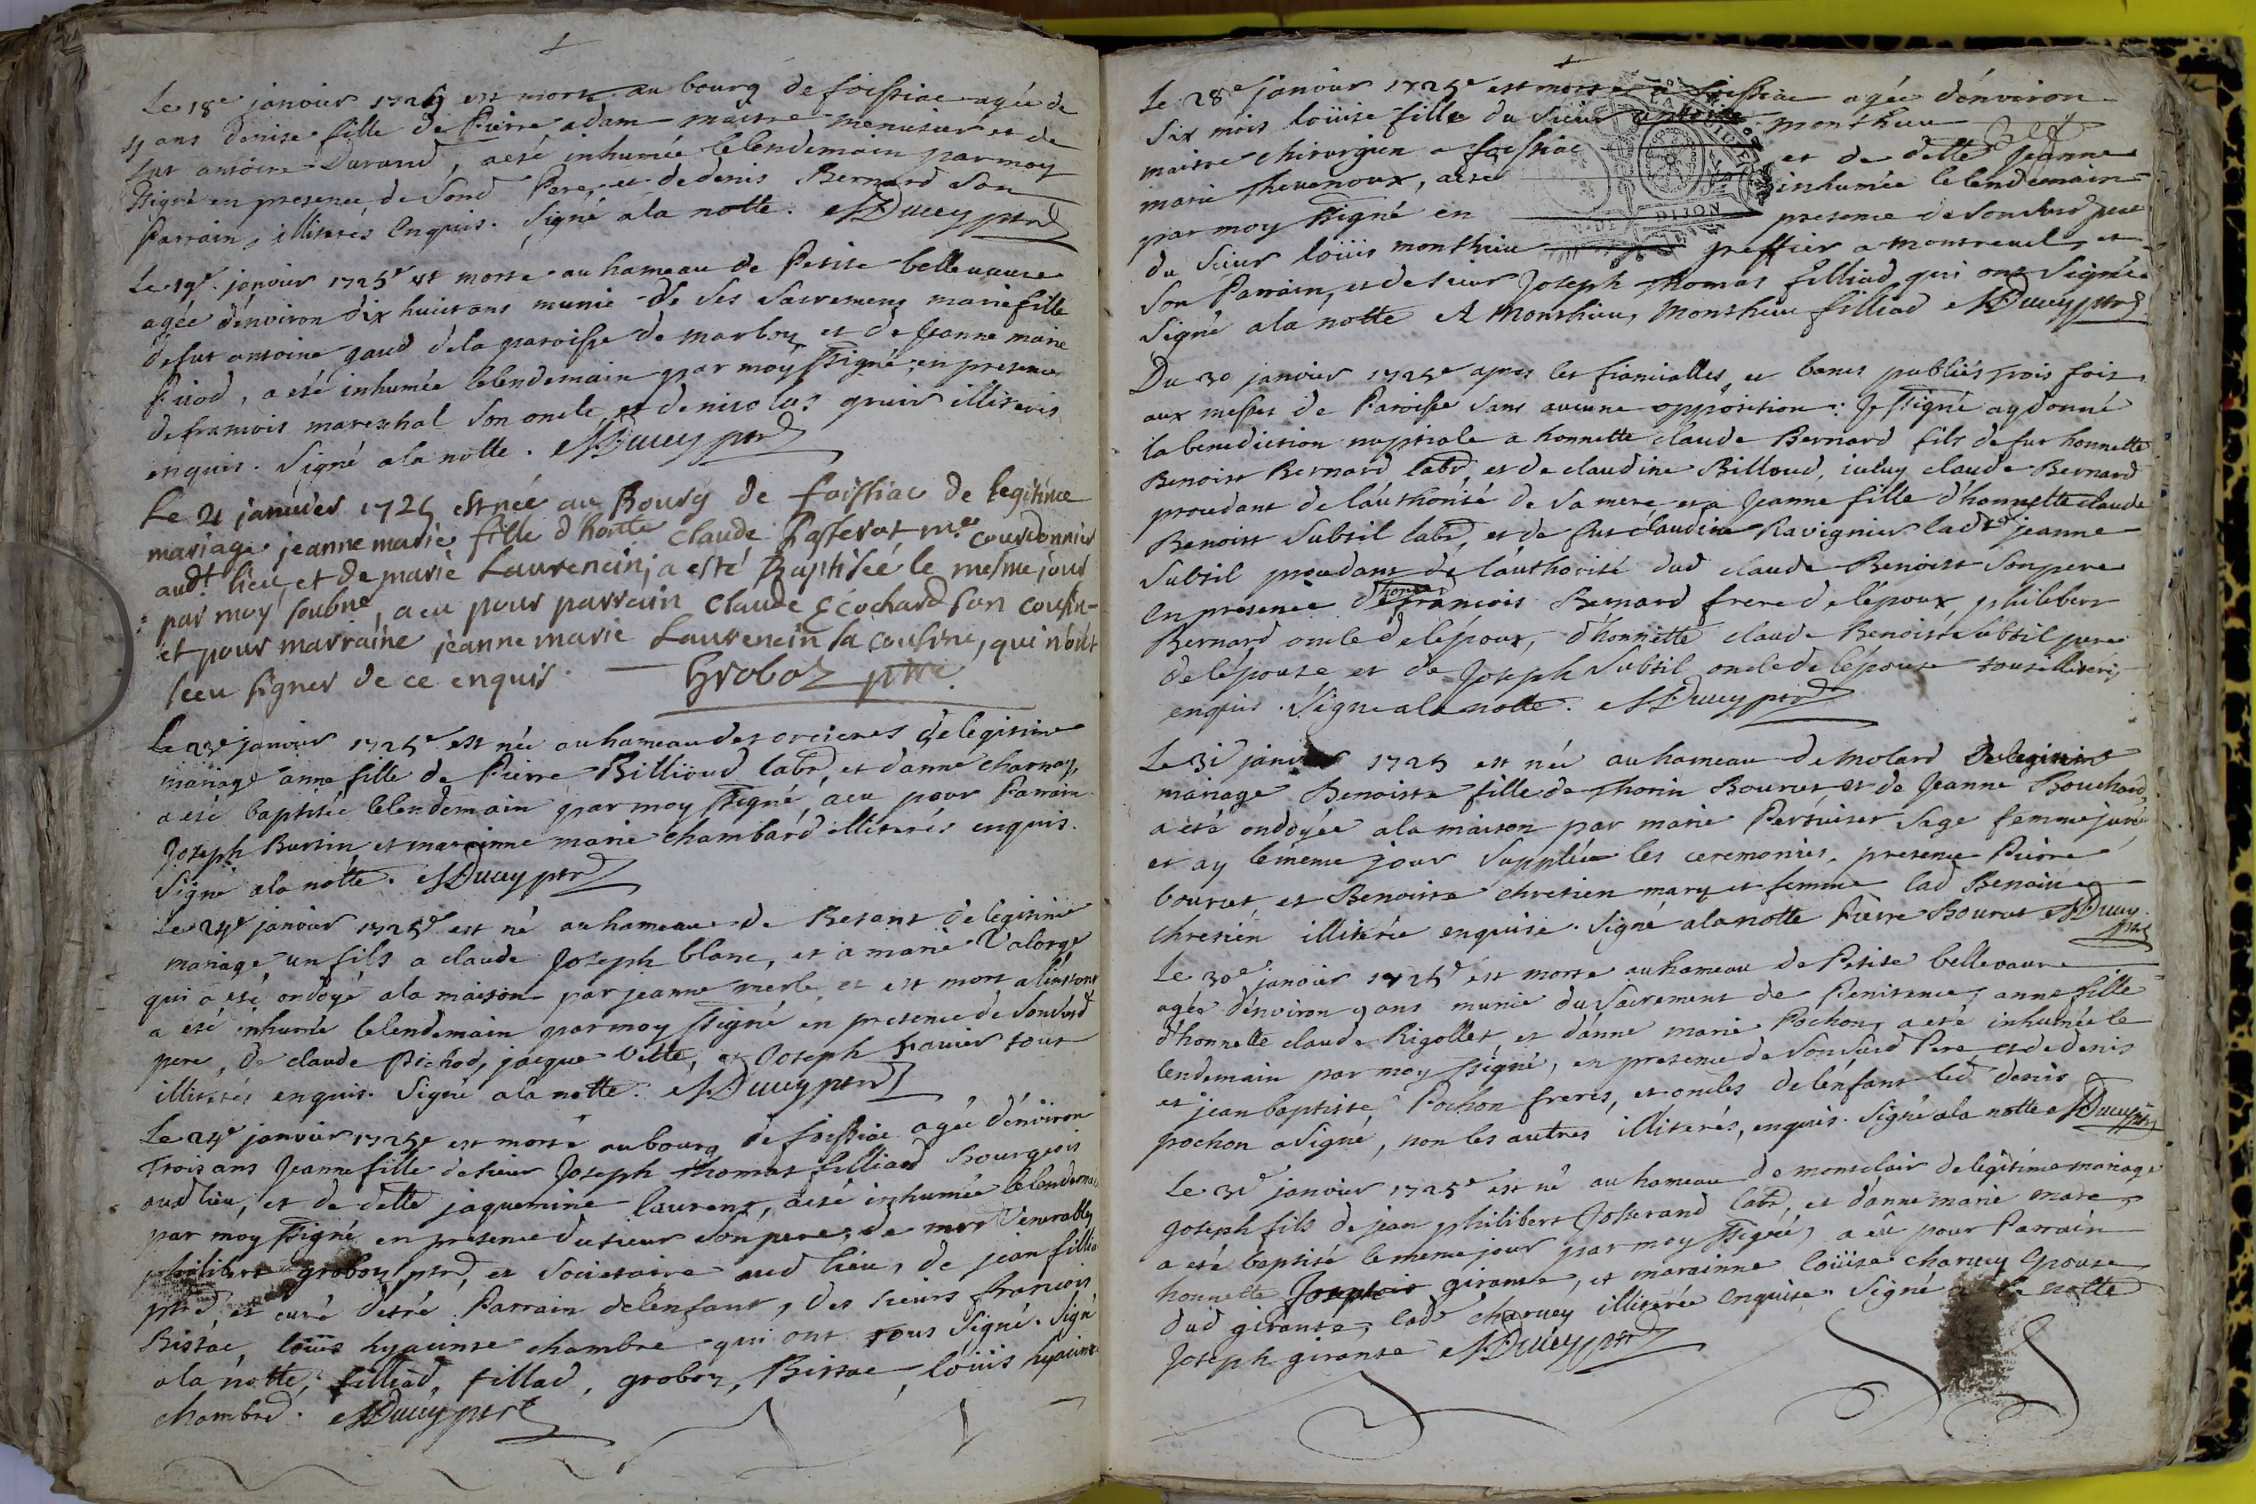 Le 18e janvier 1725 est morte au bourg de foissiac agée de
11 ans denise fille de Pierre adam maitre menusier et de
fut antoine Durand, a esté inhumée le lendemain par moy
ssigné en presence de sond Pere, et de denis Bernard son
Parrain, illiterés enquis. Signé a la notte. Ducey ptre
Le 19e janvier 1725e est morte au hameau de Petite bellevavre
agée d'environ dix huict ans munie de ses sacremens marie fille
de fut antoine gaud de la paroisse de marboz et de Jeanne marie
Puiod, a eté inhumée le lendemain par moy ssigné, en presence
de francois mareschal son oncle et de nicolas gruir illiterés
enquis. Signé a la notte. Ducey ptre
Le 21 janvier 1725 est née au Bourg de foissiac de legitime
mariage jeanne marie fille d'honte Claude Pasterat me courdonnier
audt lieu, et de marie Laurencin; a esté Baptisée le mesme jour
par moy soubné, a eu pour parrain Claude Cochard son cousin
et pour marraine jeanne marie Laurencin sa cousine, qui n'ont
sceu signer de ce enquis. Groboz ptre
Le 23e janvier 1725e est née au hameau des orcieres de legitime
mariage anne fille de Pierre Billioud labr, et d'anne charnay,
a eté baptisée le lendemain par moy ssigné, a eu pour Parrain
Joseph Burtin et marainne marie chambard illiterés enquis.
Signé a la notte. Ducey ptre
Le 24e janvier 1725e est né au hameau de Besant de legitime
mariage un fils a claude Joseph blanc, et a marie Valorge
qui a eté ondoyé a la maison par jeanne merle et est mort a l'instant
a eté inhumé le lendemain par moy ssigné en presence de son susd
pere, de claude Pichod, jacque Vitte, et Joseph favier tous
illiterés enquis. Signé a la notte. Ducey ptre
Le 24e janvier 1725e est morte au bourg de foissiac agée d'environ
Trois ans Jeanne fille de sieur Joseph thomas filliard bourgeois
aud lieu, et de delle jaquemine laurent, a eté inhumée le lendemain
par moy ssigné en presence du sieur son pere, de mre Venerable
philibert groboz ptre, et societaire aud lieu, de jean filliard
ptre, et curé d'etré Parrain de l'enfant, des sieurs francois
Bistac, loüis hyacinte chambre qui ont tous Signé. Signé
a la notte, filliad, fillad, groboz, Bistac, loüis hyacinte
chambre. Ducey ptre
Le 28e janvier 1725e est morte a foissiac agée d'environ
Six mois loüise fille du sieur antoine monthieu
maitre chirurgien a foissiac et de delle Jeanne
marie thevenoux, a eté inhumée le lendemain
par moy ssigné en presence de son susd pere
du sieur loüis monthieu greffier a montrevel, et
son Parrain, et de sieur Joseph thomas filliad qui ont signé.
Signé a la notte A Monthieu, Monthieu filliad Ducey ptre
DIJON
Du 30 janvier 1725e apres les fiancialles, et bancs publiés trois fois
aux messes de Paroisse sans aucune opposition: Je ssigné ay donné
la benediction nuptiale a honnette claude Bernard fils de fut honnette
Benoist Bernard labr, et de claudine Billoud, iceluy claude Bernard
procedant de l'authorité de sa mere et a Jeanne fille d'honnette claude
Benoist Subtil labr, et de fut claudine Ravignier ladte jeanne
Subtil procedant de l'authorité dud claude Benoist son pere
En presence d'honte francois Bernard frere de l'epoux, philibert
Bernard oncle de l'epoux, d'honnette claude Benoist Subtil pere
de l'épouse et de Joseph Subtil oncle de l'épouse tous illiterés,
enquis. Signé a la notte. Ducey ptre
Le 31e janvier 1725 est née au hameau de molard de legitime
mariage Benoiste fille de thorin Bouvet, et de Jeanne Bouchard
a eté ondoyée a la maison par marie Pertuiset sage femme jurée
et ay le meme jour supplée les ceremonies. presence Pierre
bouvet et Benoiste chretien mary et femme lad Benoiste
chretien illiterée enquise. Signé a la notte Pierre Bouvet Ducey
ptre
Le 30e janvier 1725e est morte au hameau de Petite bellevavre
agée d'environ 9 ans munie du sacrement de Penitence, anne fille
d'honnette claude Rigollet, et d'anne marie Pochon, a eté inhumée le
lendemain par moy ssigné, en presence de son susd Pere, et de denis
et jean baptiste Pochon freres, et oncles de l'enfant led denis
pochon a signé, non les autres illiterés, enquis. Signé a la notte Ducey ptre
Le 31e janvier 1725e est né au hameau de montclair de legitime mariage
Joseph fils de jean philibert Josserand labr, et d'anne marie mare,
a eté baptisé le meme jour par moy ssigné, a eu pour Parrain
honnette Joseph girante, et marainne loüise charvey epouse
dud girante, lade charvey illiterée enquise. Signé a la notte
Joseph girante Ducey ptre